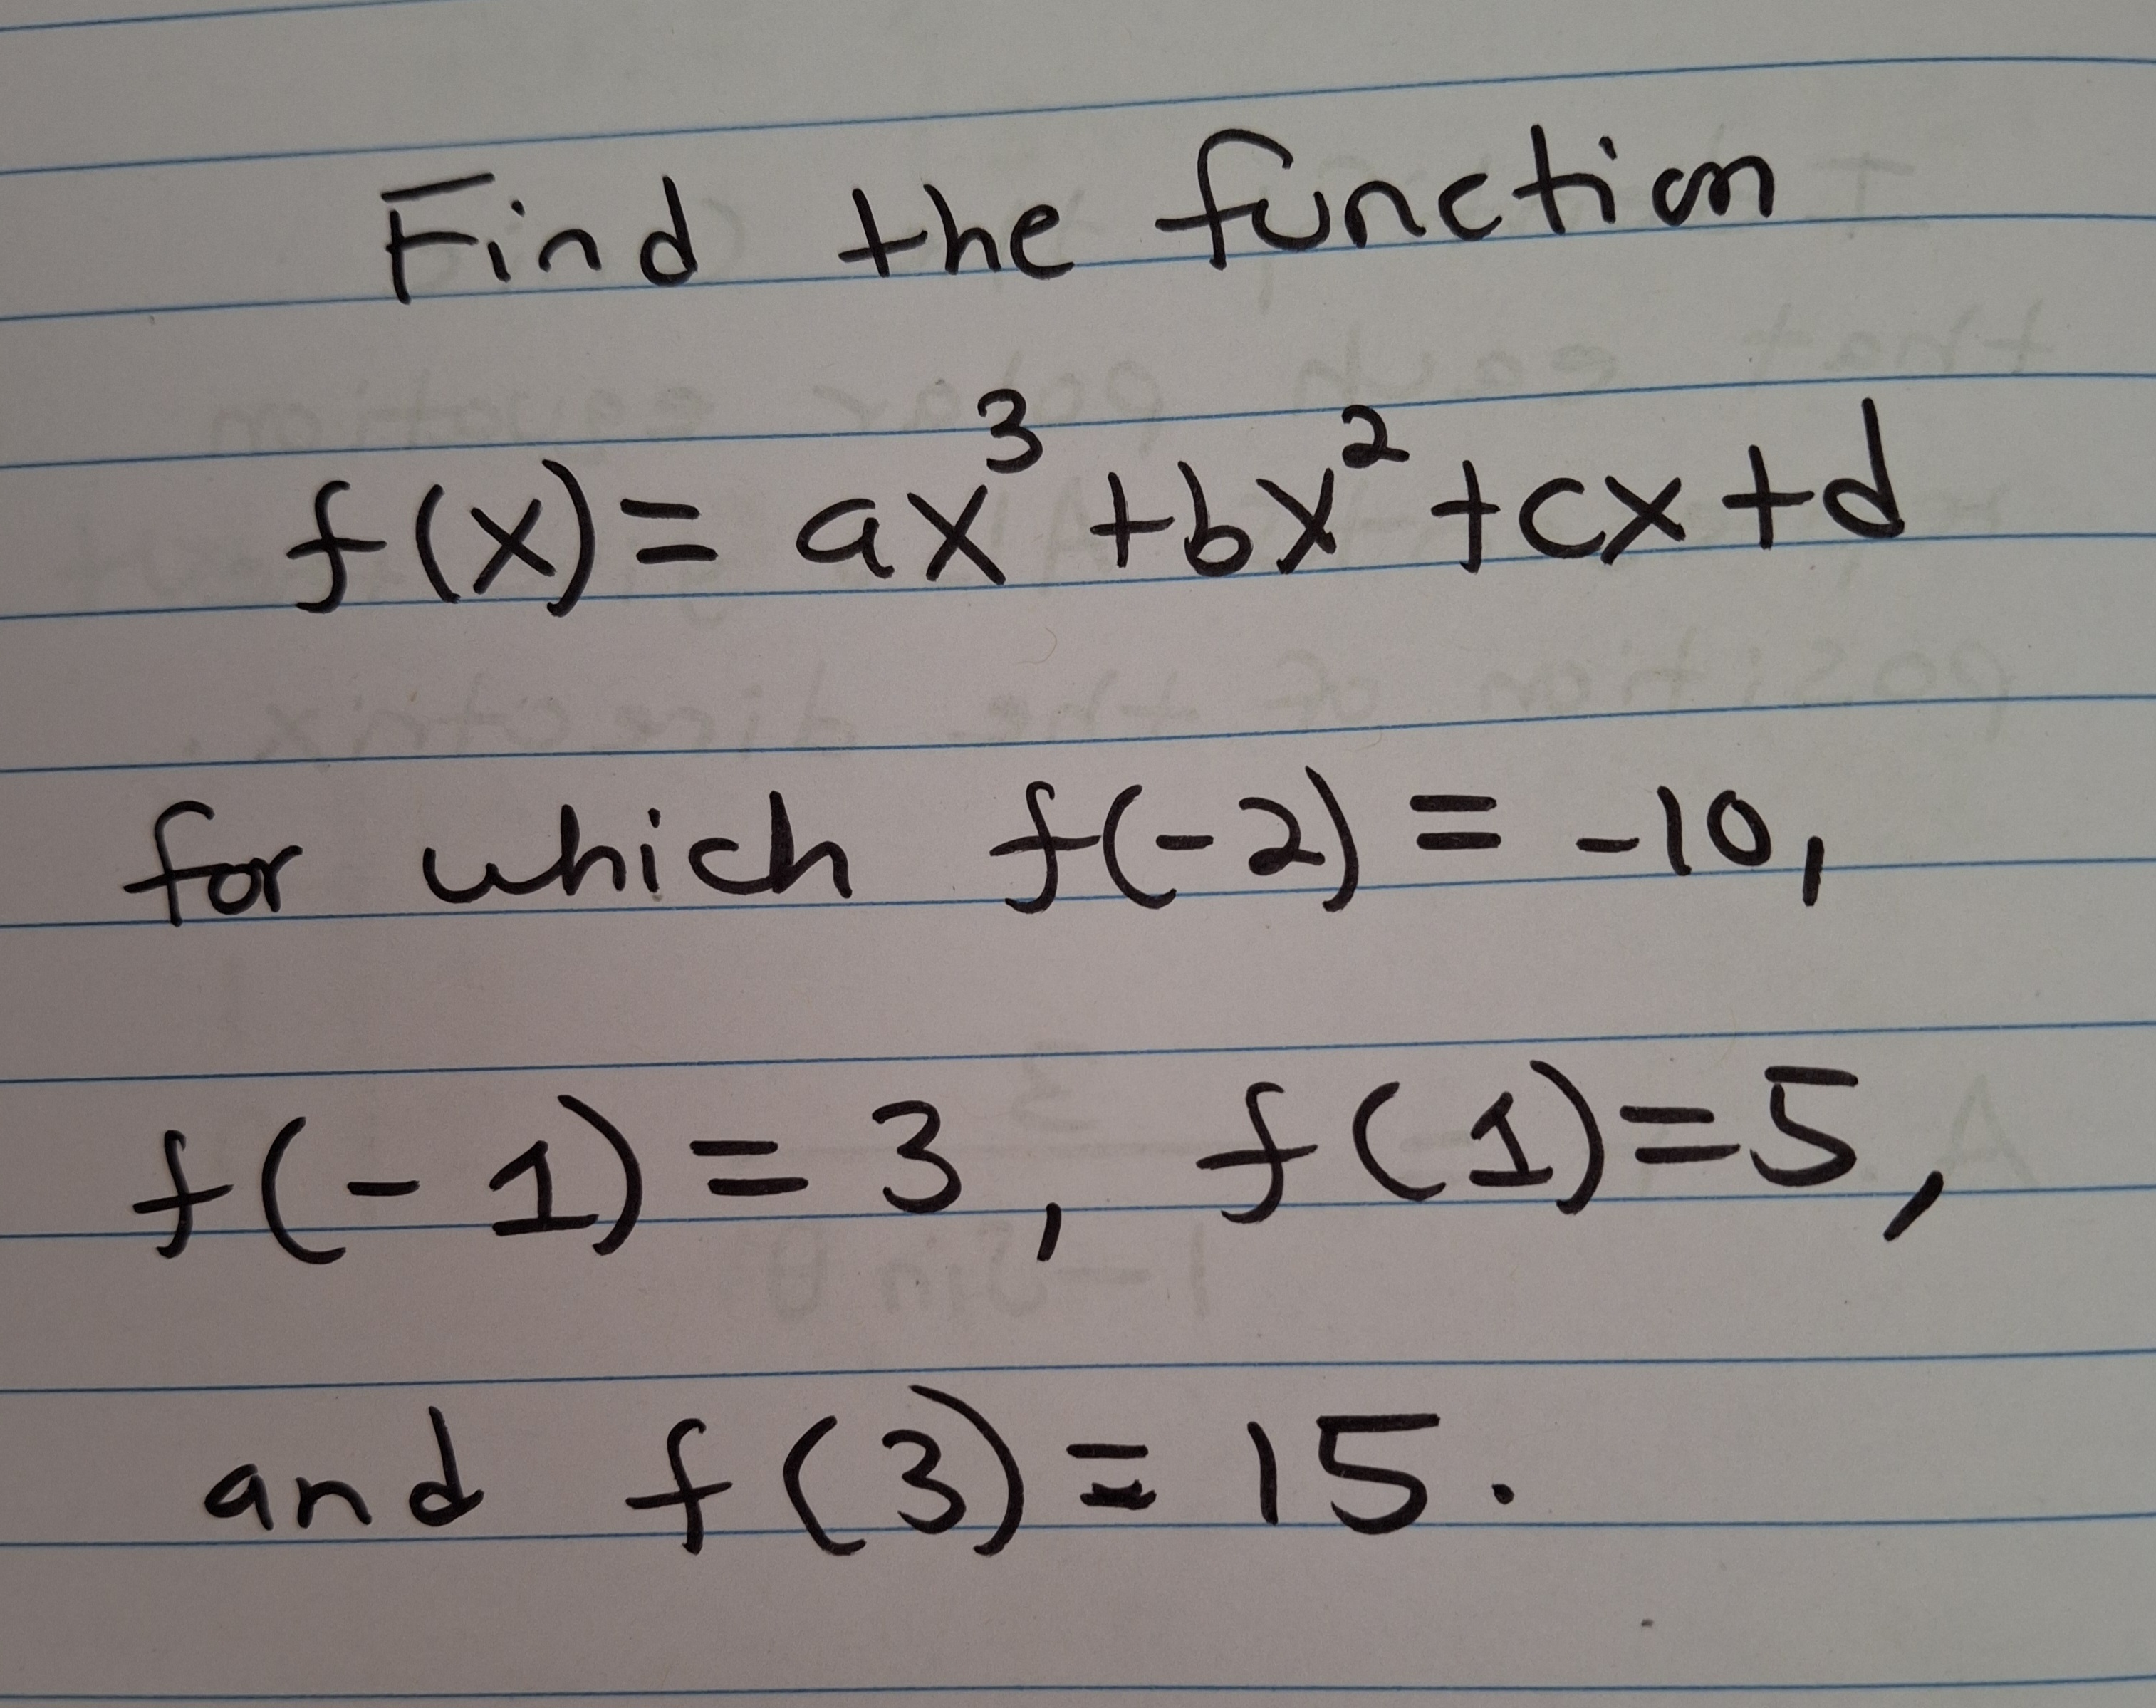 Find the function
f(x) = ax³ + bx² + cx + d
for which f(-2) = -10,
f(-1) = 3, f(1) = 5,
and f(3) = 15.